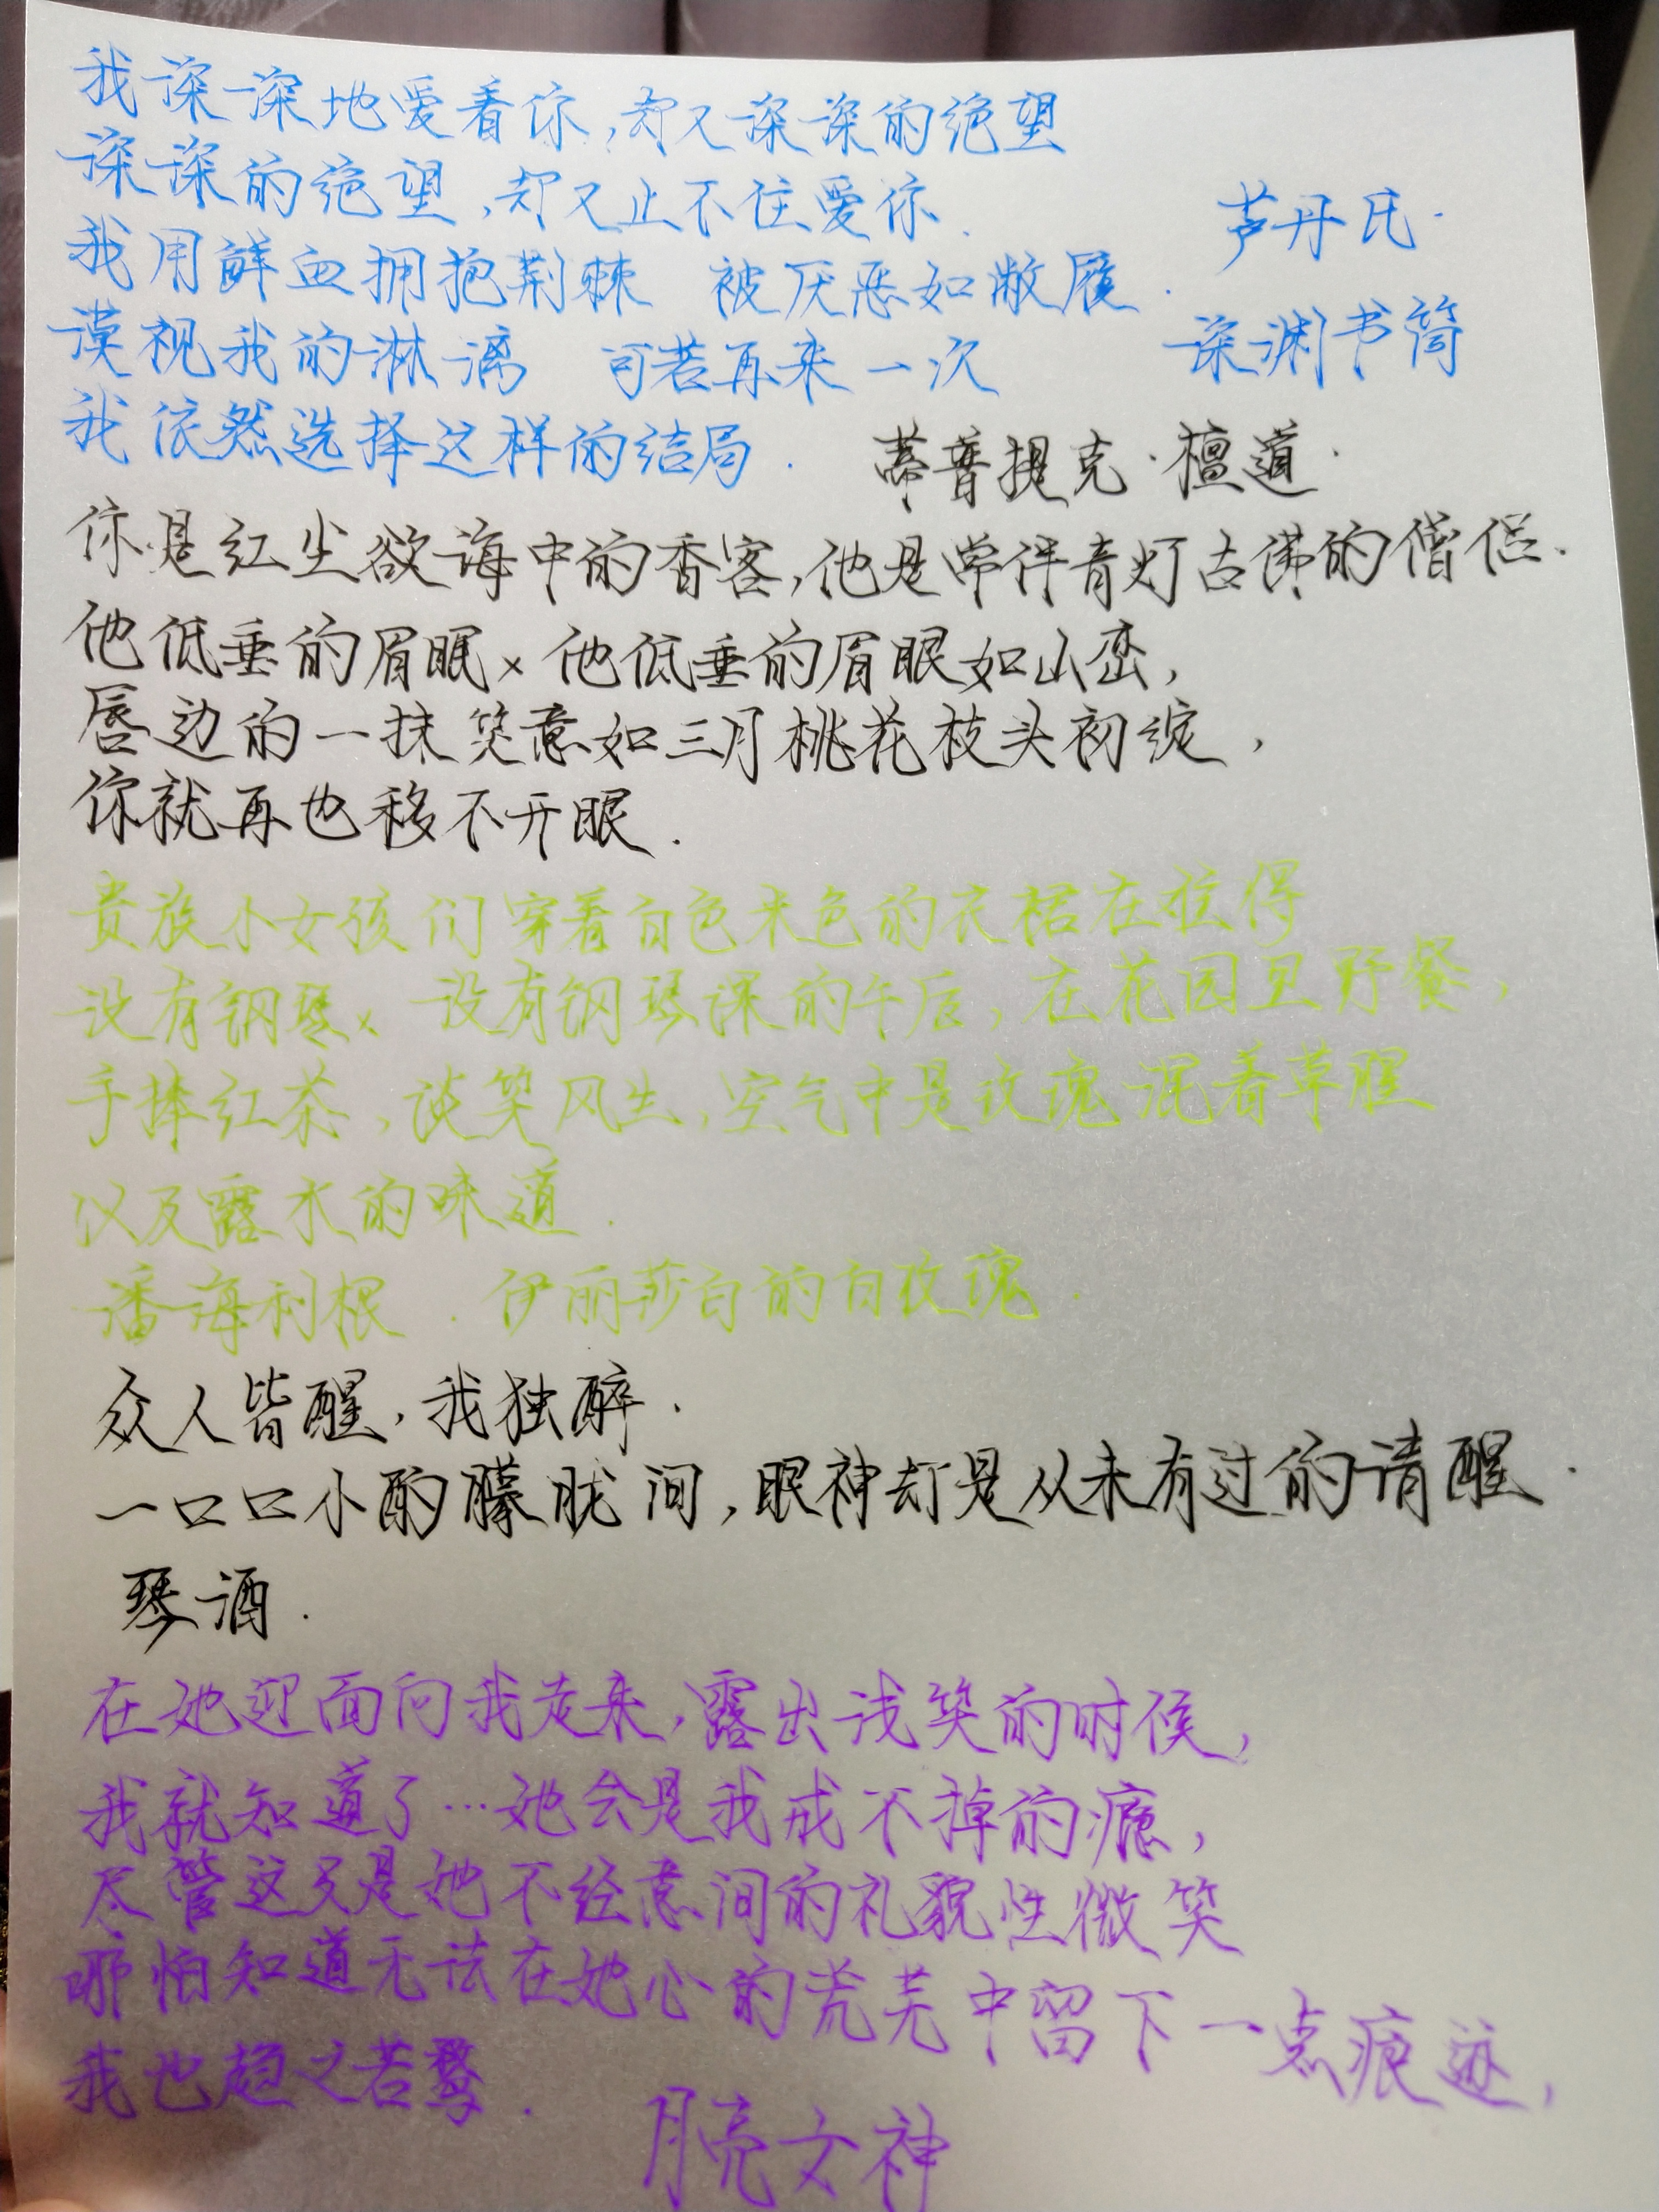 我深深地爱着你,却又深深的绝望
深深的绝望,却又止不住爱你.
芦丹氏.
我用鲜血拥抱荆棘 被厌恶如敝屣.
漠视我的淋漓 可若再来一次
深渊书简
我依然选择这样的结局.
蒂普提克·檀道.
你是红尘欲海中的香客,他是常伴青灯古佛的僧侣.
他低垂的眉眼× 他低垂的眉眼如山峦,
唇边的一抹笑意如三月桃花枝头初绽,
你就再也移不开眼.
贵族小女孩们穿着白色米色的衣裙在
没有钢琴× 没有钢琴课的午后,在花园里野餐,
手捧红茶,谈笑风生,空气中是玫瑰混着草腥
以及露水的味道.
潘海利根.伊丽莎白的白玫瑰.
众人皆醒,我独醉.
一口口小酌朦胧间,眼神却是从未有过的清醒.
琴酒.
在她迎面向我走来,露出浅笑的时候,
我就知道了…她会是我戒不掉的瘾,
尽管这只是她不经意间的礼貌性微笑
哪怕知道无法在她心的荒芜中留下一点痕迹,
我也趋之若鹜.
月亮女神